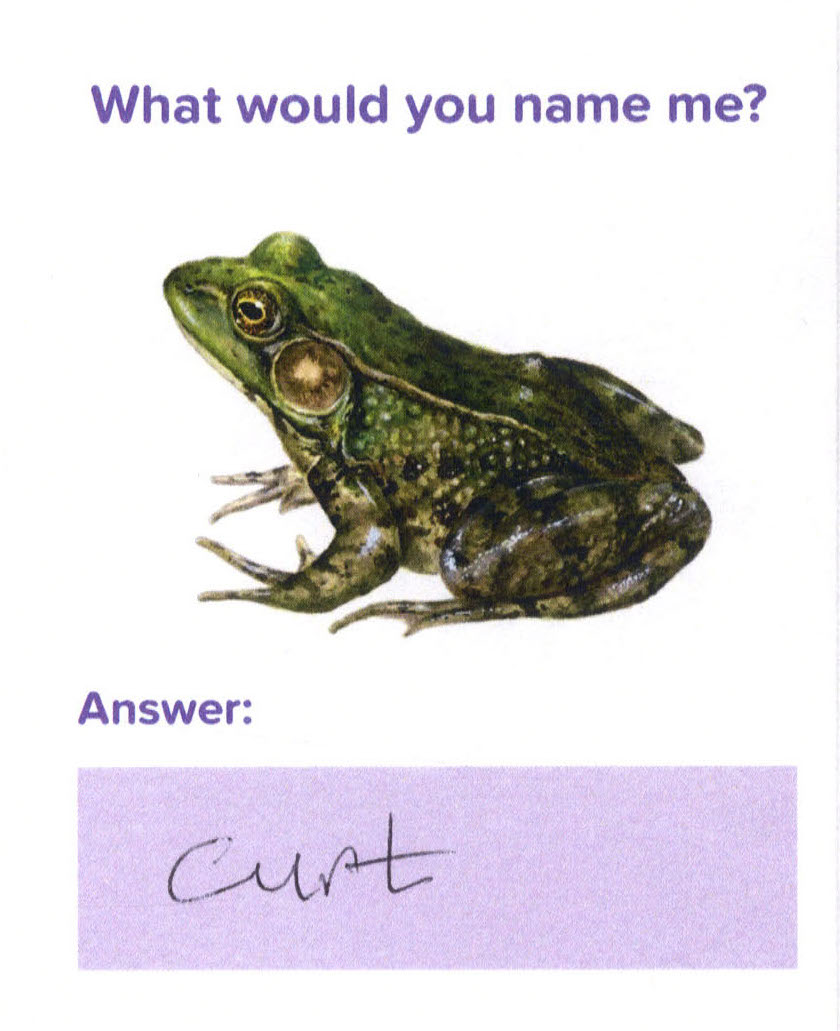 What would you name me?
Answer:
Curt